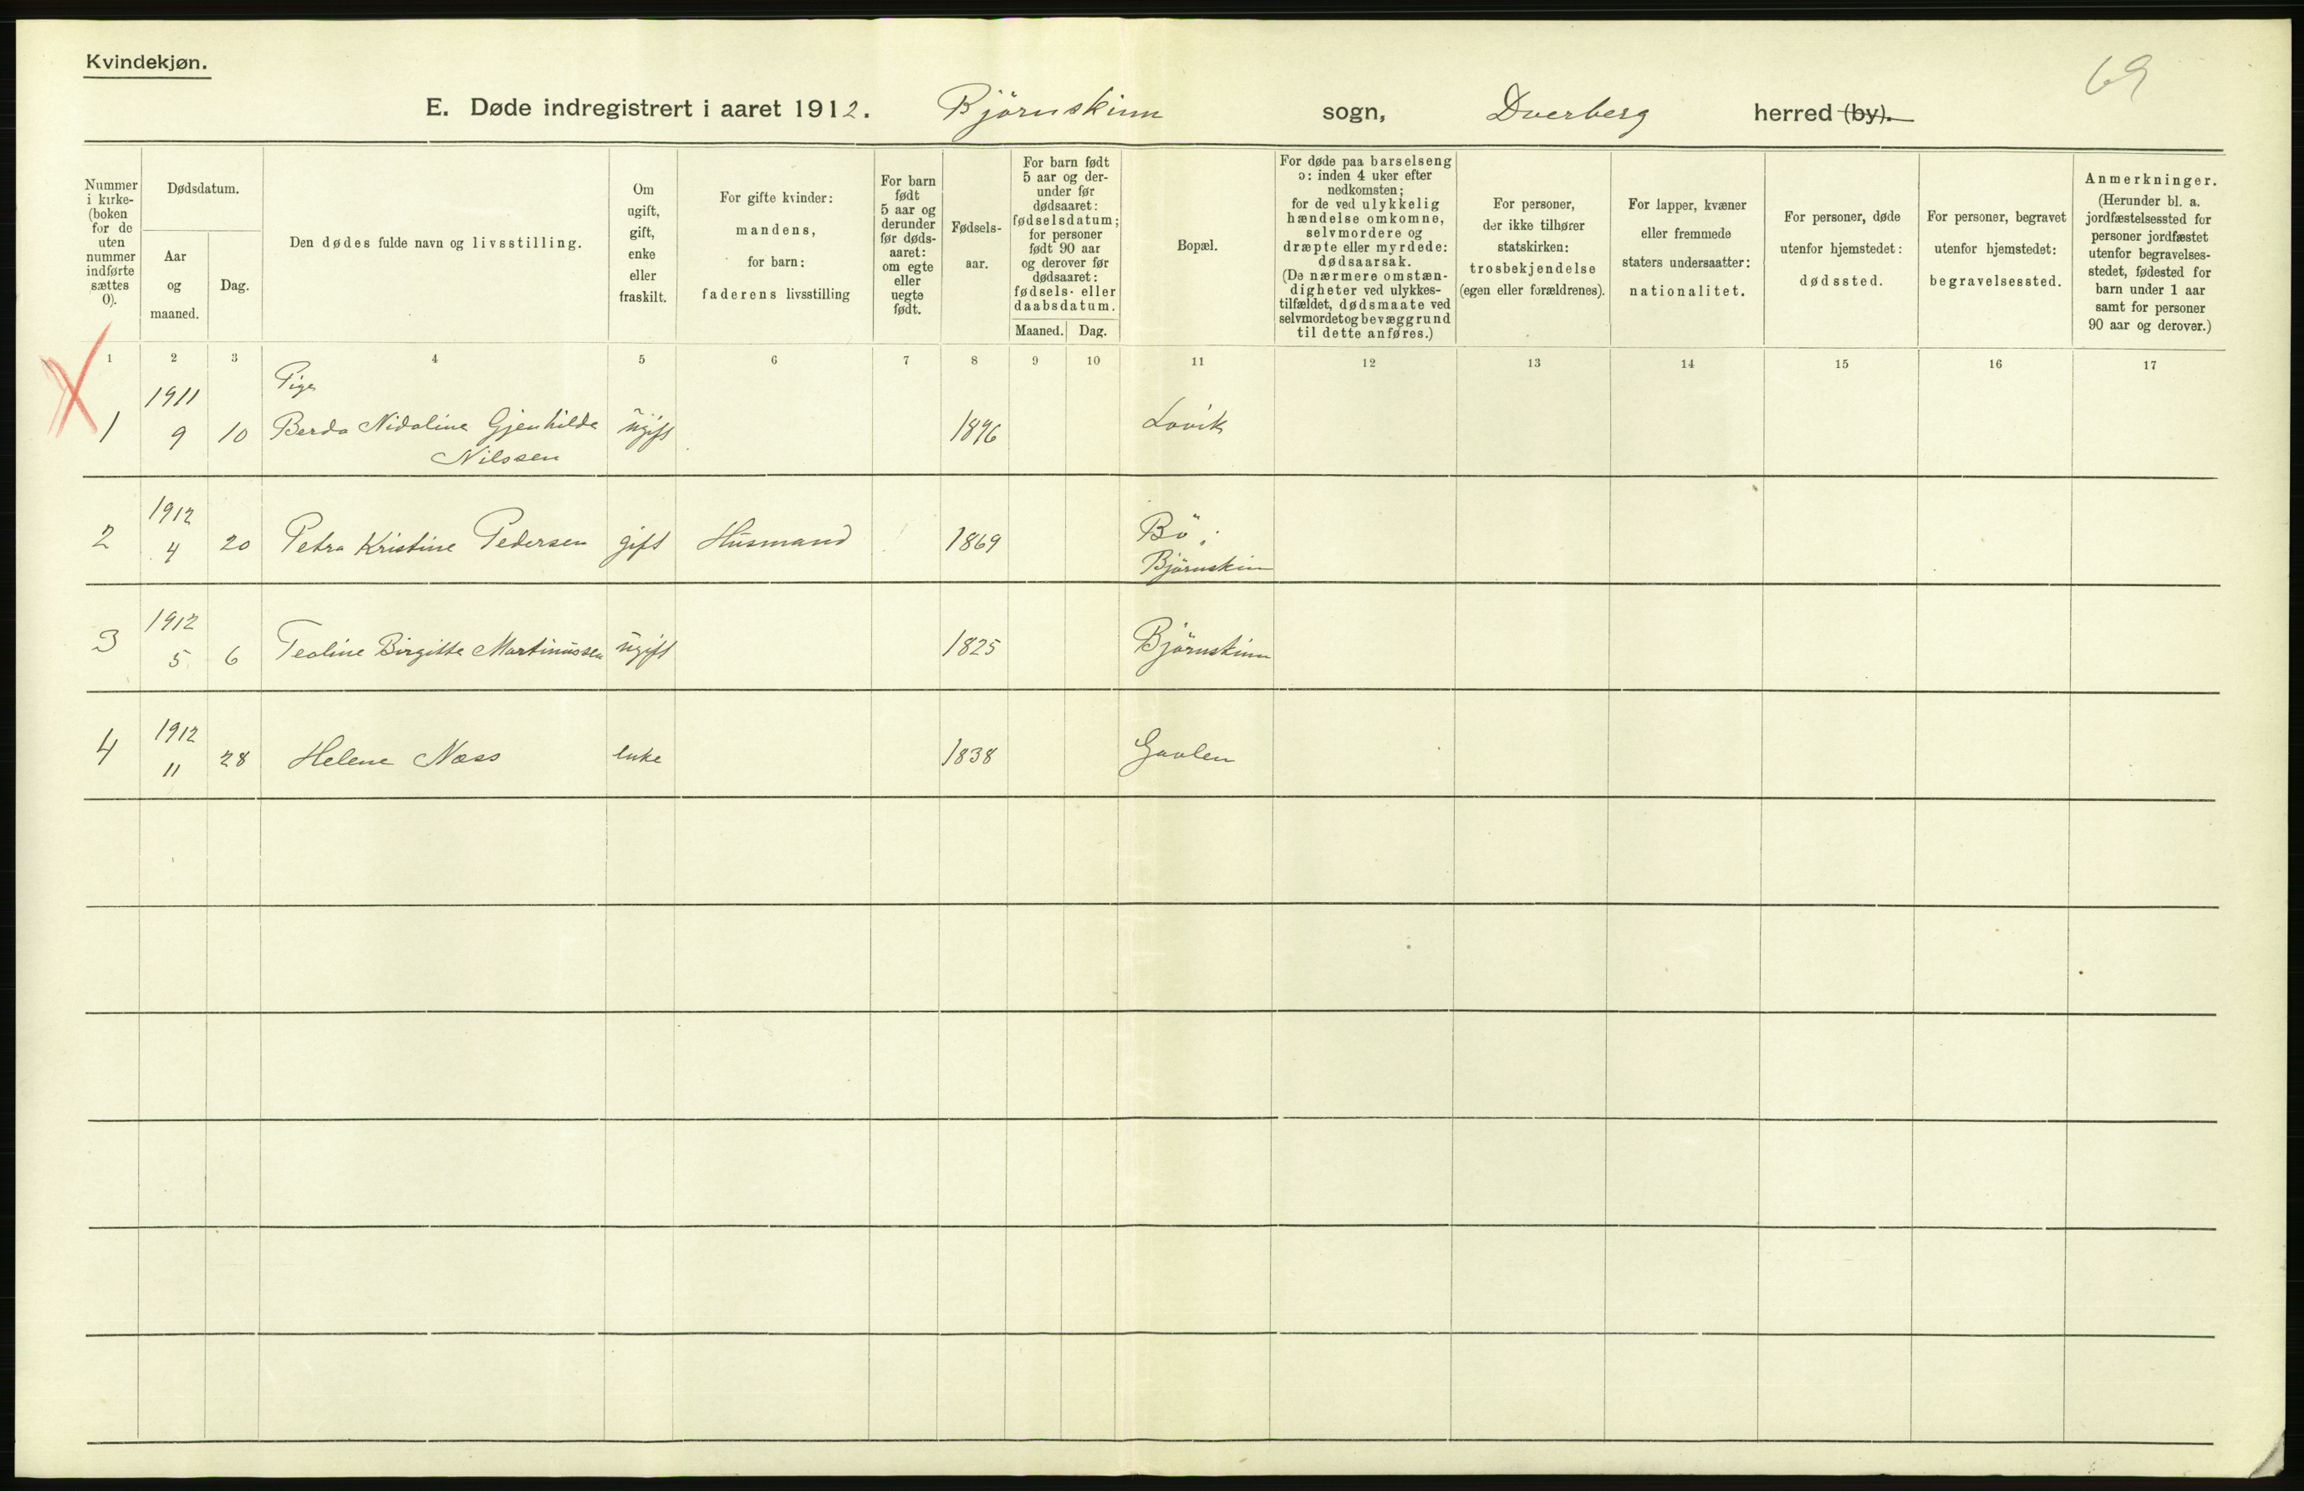 Kvindekjøn.
69
E. Døde indregistrert i aaret 1912. Björnskinn sogn, Dverberg herred (by).
Nummer
i kirke-
(boken
for de
uten
nummer
indførte
sættes
0).
Dødsdatum.
Aar
og
maaned.
Dag.
Den dødes fulde navn og livsstilling.
Om
ugift,
gift,
enke
eller
fraskilt.
For gifte kvinder:
mandens,
for barn:
faderens livsstilling
For barn
født
5 aar og
derunder
før døds-
aaret:
om egte
eller
uegte
født.
Fødsels-
aar.
For barn født
5 aar og der-
under før
dødsaaret:
fødselsdatum;
for personer
født 90 aar
og derover før
dødsaaret:
fødsels- eller
daabsdatum.
Maaned. Dag.
Bopæl.
For døde paa barselseng
ɔ: inden 4 uker efter
nedkomsten;
for de ved ulykkelig
hændelse omkomne,
selvmordere og
dræpte eller myrdede:
dødsaarsak.
(De nærmere omstæn-
digheter ved ulykkes-
tilfældet, dødsmaate ved
selvmordet og bevæggrund
til dette anføres.)
For personer,
der ikke tilhører
statskirken:
trosbekjendelse
(egen eller forældrenes).
For lapper, kvæner
eller fremmede
staters undersaatter:
nationalitet.
For personer, døde
utenfor hjemstedet:
dødssted.
For personer, begravet
utenfor hjemstedet:
begravelsessted.
Anmerkninger.
(Herunder bl. a.
jordfæstelsessted for
personer jordfæstet
utenfor begravelses-
stedet, fødested for
barn under 1 aar
samt for personer
90 aar og derover.)
1 2 3 4 5 6 7 8 9 10 11 12 13 14 15 16 17
1911 Pige
1 9 10 Berda Nidoline Gjenhilda ugift 1896 Lovik
Nilssen
1912 Bö i
2 4 20 Petra Kristine Pedersen gift Husmand 1869 Björnskinn
1912
3 5 6 Teoline Birgitte Martinussen ugift 1825 Björnskinn
1912
4 11 28 Helene Næss enke 1838 Gavlen